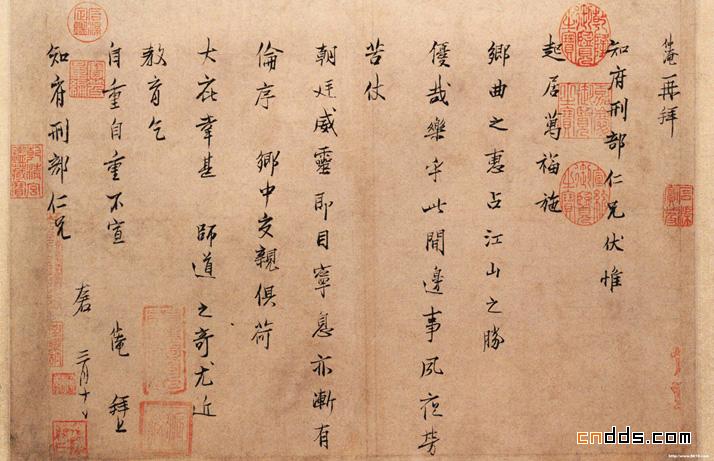 仲淹再拜
知府刑部仁兄伏惟
起居萬福施
鄉曲之惠占江山之勝
優哉樂乎此間邊事夙夜勞
苦仗
朝廷威靈即目寧息亦漸有
倫序鄉中交親俱荷
大庇幸甚師道之奇尤近
教育乞
自重自重不宣 淹 拜上
知府刑部仁兄
三月十日
cndds.com